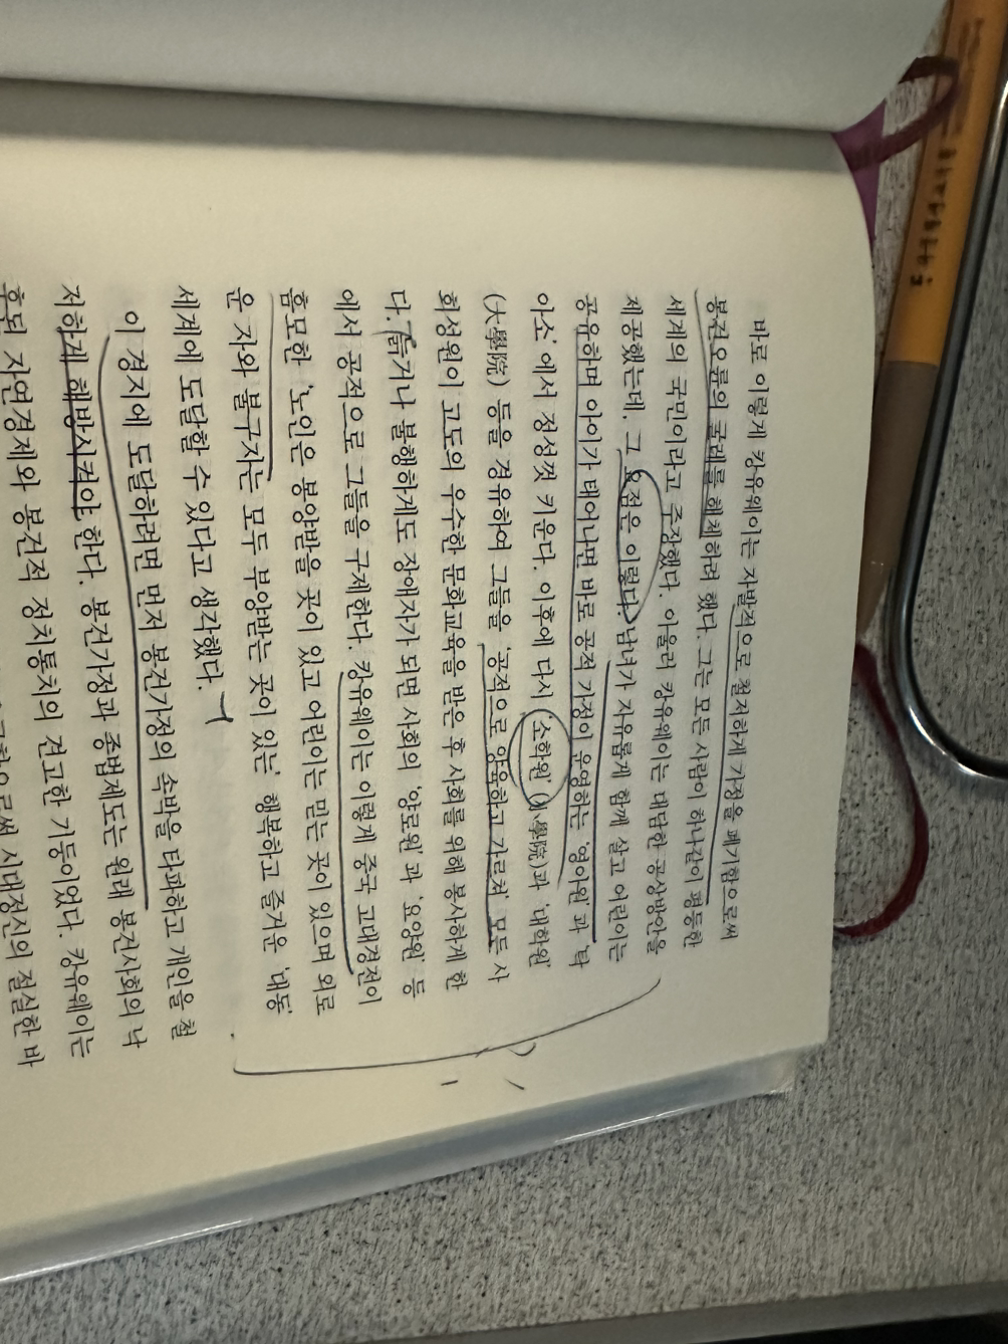 바로 이렇게 캉유웨이는 자발적으로 철저하게 가정을 폐기함으로써
봉건오륜의 굴레를 해체하려 했다. 그는 모든 사람이 하나같이 평등한
세계의 국민이라고 주장했다. 아울러 캉유웨이는 대담한 공상방안을
제공했는데, 그 요점은 이렇다. 남녀가 자유롭게 함께 살고 어린이는
공유하며 아이가 태어나면 바로 공적 가정이 운영하는 ‘영아원’과 ‘탁
아소’에서 정성껏 키운다. 이후에 다시 ‘소학원’(小學院)과 ‘대학원’
(大學院) 등을 경유하여 그들을 ‘공적으로 양육하고 가르쳐’ 모든 사
회성원이 고도의 우수한 문화교육을 받은 후 사회를 위해 봉사하게 한
다. 늙거나 불행하게도 장애자가 되면 사회의 ‘양로원’과 ‘요양원’ 등
에서 공적으로 그들을 구제한다. 캉유웨이는 이렇게 중국 고대경전이
흠모한 ‘노인은 봉양받을 곳이 있고 어린이는 믿는 곳이 있으며 외로
운 자와 불구자는 모두 부양받는 곳이 있는’ 행복하고 즐거운 ‘대동’
세계에 도달할 수 있다고 생각했다.
이 경지에 도달하려면 먼저 봉건가정의 속박을 타파하고 개인을 철
저하게 해방시켜야 한다. 봉건가정과 종법제도는 원래 봉건사회의 낙
후된 자연경제와 봉건적 정치통치의 견고한 기둥이었다. 캉유웨이는
시대정신의 절실한 바